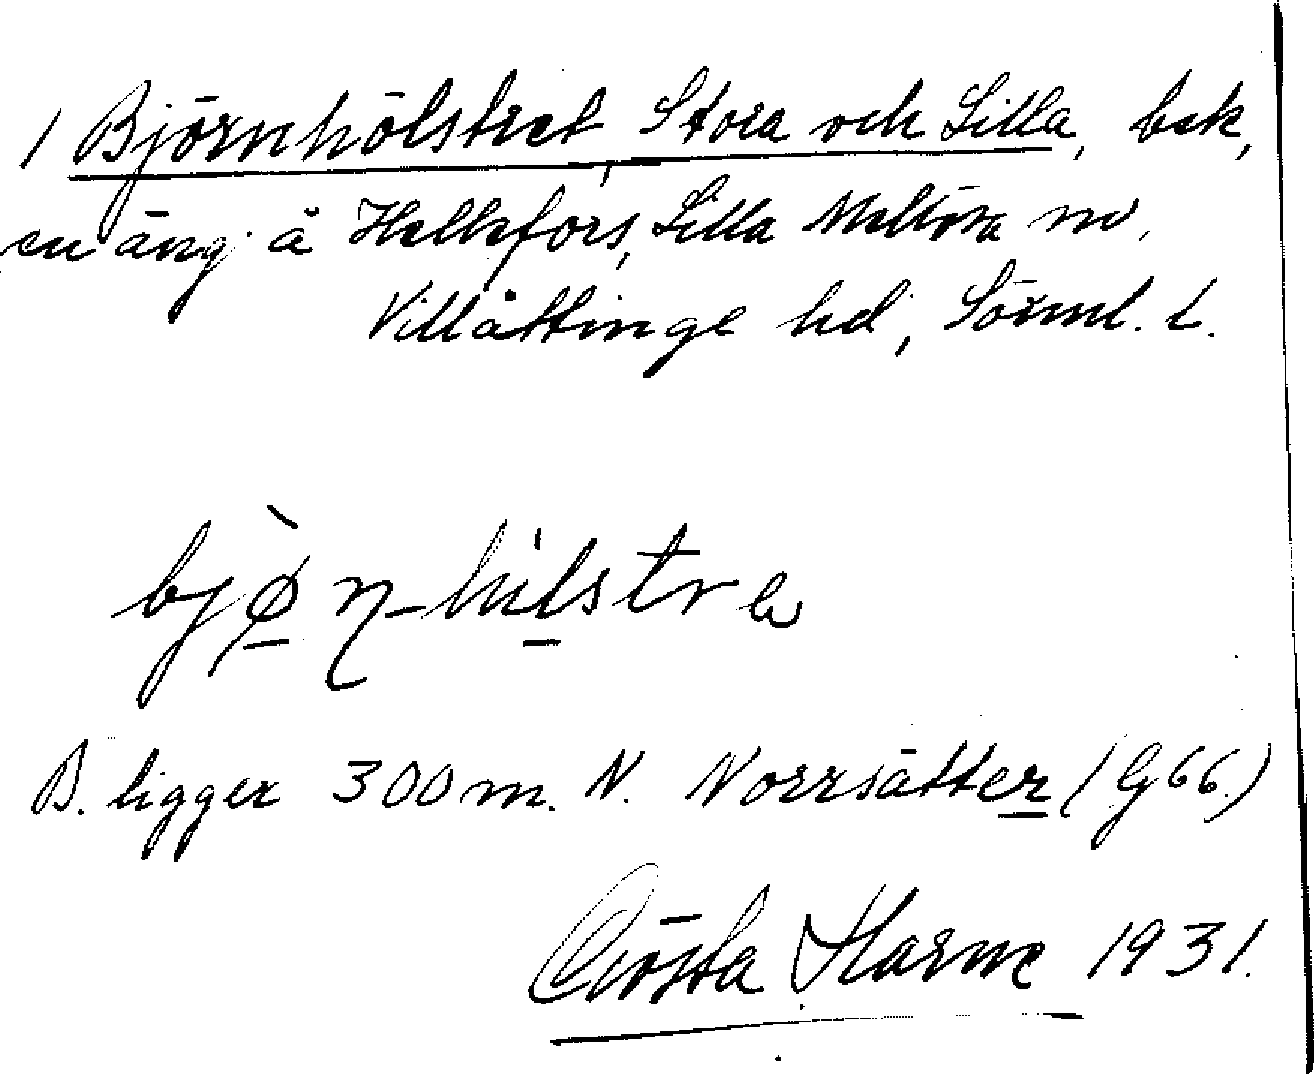 1 Björnhölstret, Stora och Lilla, bek,
en äng å Hellefors, Lilla Mellösa sn,
Villåttinge hd, Sörml. l.
bjø̀ṇ-hùlstra
B. ligger 300 m. N. Norrsätter (G66.)
Gösta Harne 1931.